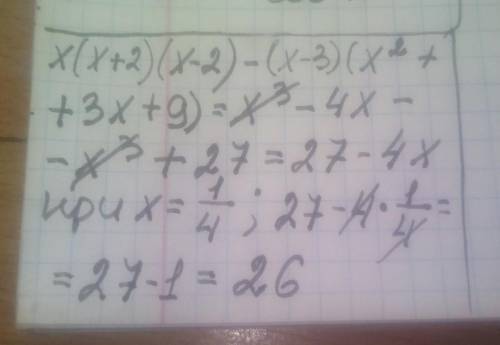 x(x+2)(x-2)-(x-3)(x²+
+3x+9)=x³-4x-
-x³+27=27-4x
при x=1/4; 27-4·1/4=
=27-1=26